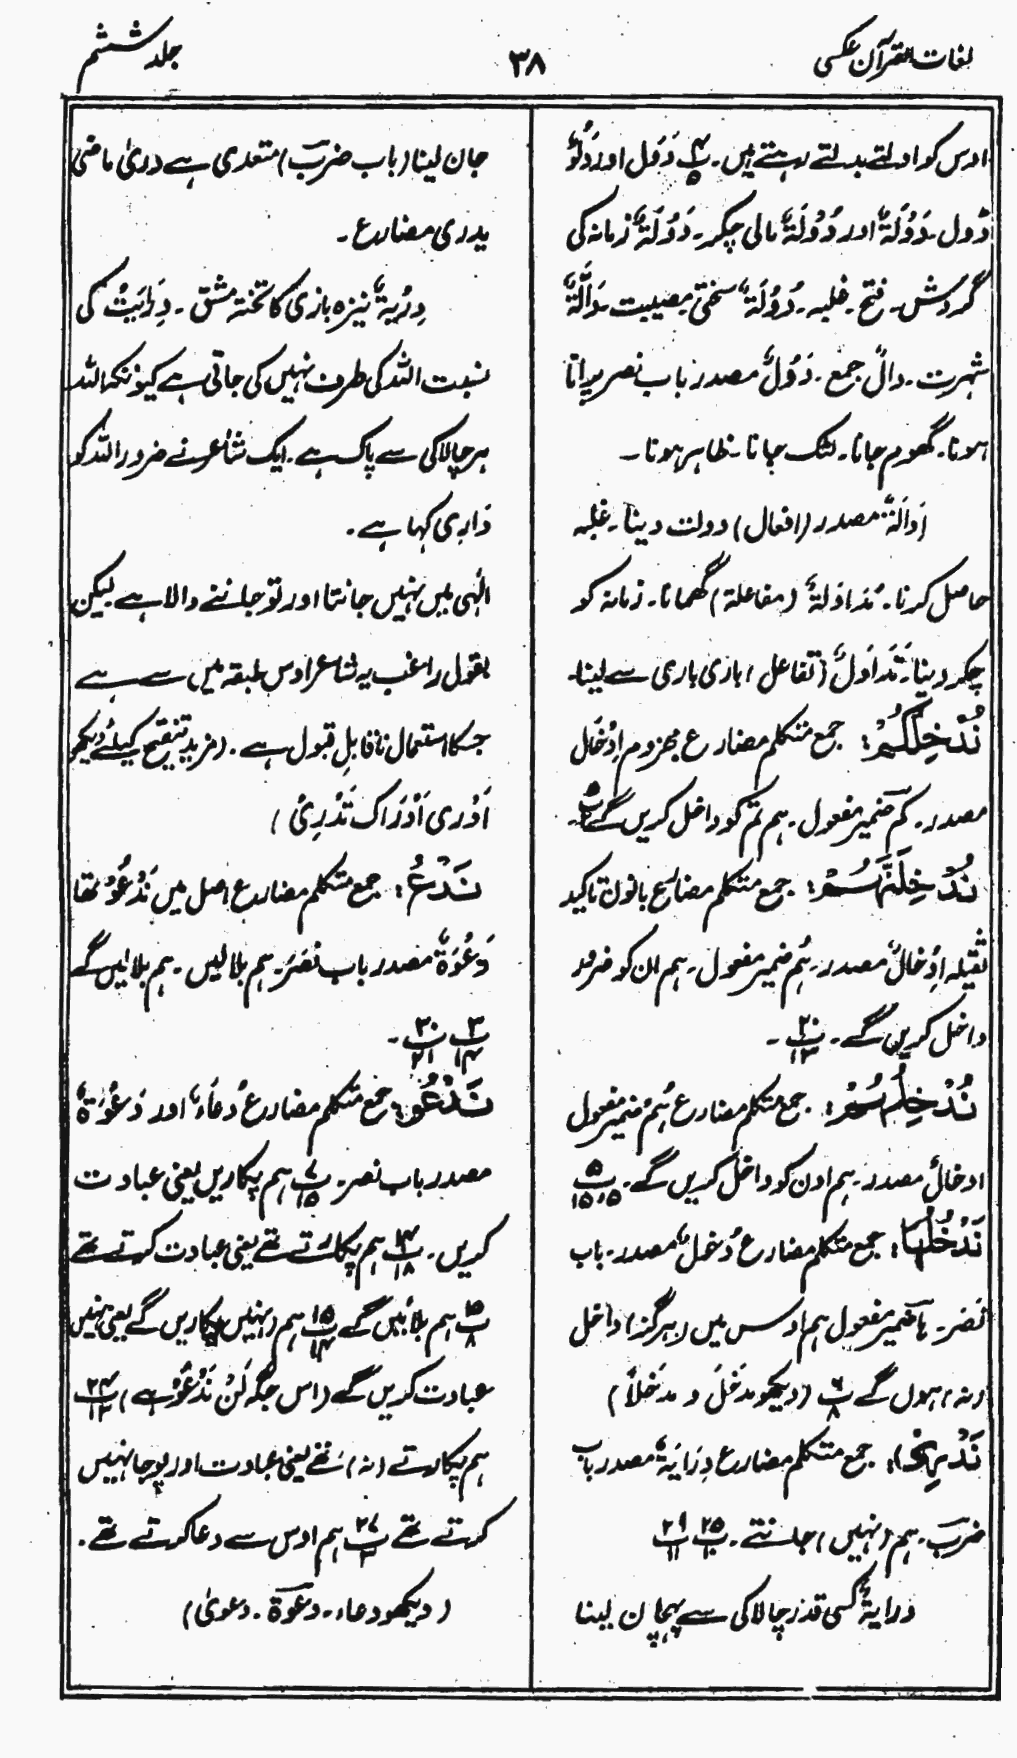 لغات القرآن عکسی
۳۸
جلد ششم
اوس کو ادلتے بدلتے رہتے ہیں۔ پ۴ ۵ دَوَل اور دُلُوْ
دُول۔ دَوْلَۃٌ اور دُوْلَۃٌ مالی چکر۔ دَوْلَۃٌ زمانہ کی
گردش۔ فتح۔ غلبہ۔ دُوْلَۃٌ سختی۔ مصیبت۔ دَالَّۃٌ
شہرت۔ دالٌ جمع۔ دَوْلٌ مصدر باب نصر پرانا
ہونا۔ گھوم جانا۔ لٹک جانا۔ ظاہر ہونا۔
اَدَالَۃٌ مصدر (افعال) دولت دینا۔ غلبہ
حاصل کرنا۔ مُدَاوَلَۃٌ (مفاعلۃ) گھمانا۔ زمانہ کو
چکر دینا۔ تَدَاوُلٌ (تفاعل) باری باری سے لینا۔
نُدْخِلْکُمْ: جمع متکلم مضارع مجزوم اِدْخَال
مصدر۔ کُم ضمیر مفعول۔ ہم تم کو داخل کریں گے پ۵
نُدْخِلَنَّہُمْ: جمع متکلم مضارع بانون تاکید
ثقیلہ اِدْخَالٌ مصدر۔ ہُم ضمیر مفعول۔ ہم ان کو ضرور
داخل کریں گے۔ پ۲۰ ۱۳۔
نُدْخِلُہُمْ: جمع متکلم مضارع ہُمْ ضمیر مفعول
ادخالٌ مصدر۔ ہم اون کو داخل کریں گے۔ پ۵ ۵، ۱۵
نَدْخُلَہَا: جمع متکلم مضارع دُخولٌ مصدر۔ باب
نَصَر۔ ہَا ضمیر مفعول ہم اوس میں (ہرگز) داخل
(نہ) ہوں گے پ۶ ۸ (دیکھو مدخَلَ و مدخلاً)
نَدْرِیْ: جمع متکلم مضارع دِرَایَۃٌ مصدر باب
ضرب۔ ہم (نہیں) جانتے۔ پ۲۵ ۲۰ پ۲۹ ۱۱
درایۃٌ کسی قدر چالاکی سے پہچان لینا
جان لینا (باب ضَرَبَ) متعدی ہے دریٰ ماضی
یدری مضارع۔
دِرْیَۃٌ نیزہ بازی کا تختۂ مشق۔ دِرَایَتُ کی
نسبت اللہ کی طرف نہیں کی جاتی ہے کیونکہ اللہ
ہر چالاکی سے پاک ہے۔ ایک شاعر نے ضرور اللہ کو
دَارِی کہا ہے۔
الٰہی میں نہیں جانتا اور تو جاننے والا ہے لیکن
بقول راغب یہ شاعر اوس طبقہ میں سے ہے
جسکا استعمال ناقابلِ قبول ہے۔ (مزید تنقیح کیلئے دیکھو
اَدْرٰی اَدْرَاک تَدْرِیْ)
نَدْعُ: جمع متکلم مضارع اصل میں نَدْعُوْ تھا
دَعْوَۃٌ مصدر باب نَصَرَ۔ ہم بلالیں۔ ہم بلائیں گے
پ۳ ۱۴ پ۳۰ ۲۱۔
نَدْعُوْ: جمع متکلم مضارع دُعَاءٌ اور دَعْوَۃٌ
مصدر باب نصر۔ پ۷ ۱۵ ہم پکاریں یعنی عبادت
کریں۔ پ۱۴ ۱۸ ہم پکارتے تھے یعنی عبادت کرتے تھے
پ۱۵ ۸ ہم بلائیں گے پ۱۵ ۱۴ ہم (نہیں) پکاریں گے یعنی نہیں
عبادت کریں گے (اس جگہ لَنْ نَدْعُوَا ہے) پ۲۴ ۱۳
ہم پکارتے (نہ) تھے یعنی عبادت اور پوجا نہیں
کرتے تھے پ۲۷ ۳ ہم اوس سے دعا کرتے تھے۔
(دیکھو دعاء۔ دعوۃ۔ دعویٰ)